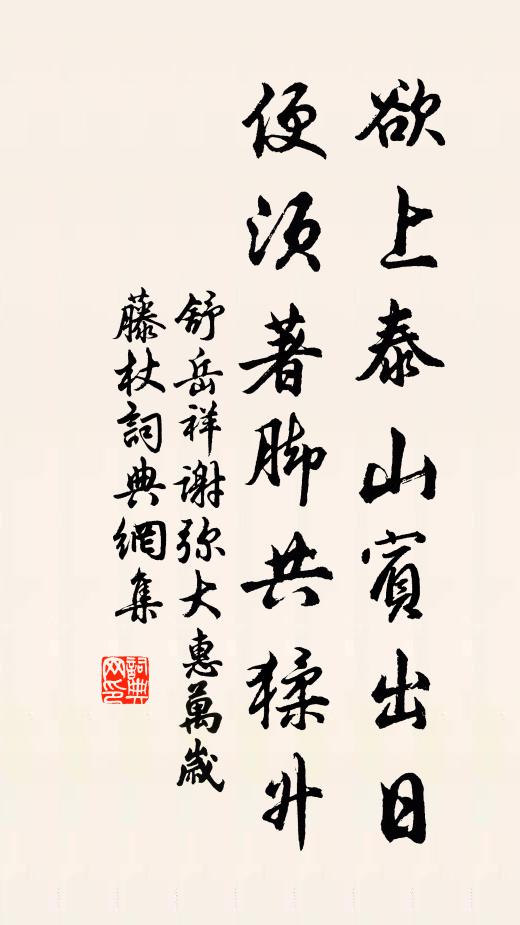 欲上泰山賓出日
便須著脚共猱升
舒岳祥謝弥大惠萬歲
藤杖詞典網集
詞典網印